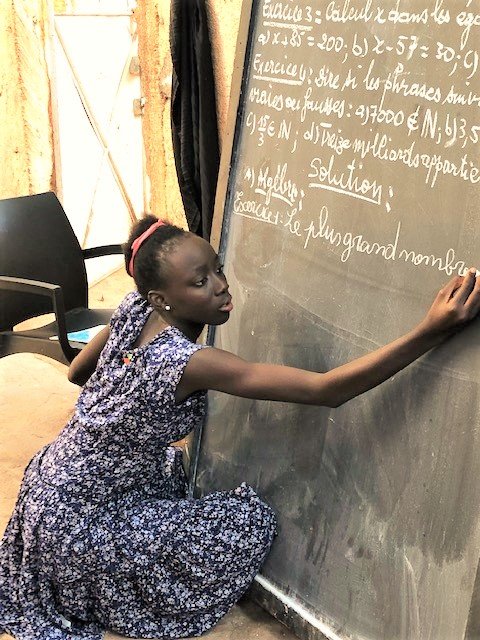 Exercice 3 = Calcul x dans les ég
a) x+85=200; b) x-57=30; c)
Exercice 4: dire si les phrases suiv
vraies ou fausses: a) 7000 ∉ ℕ; b) 3,5
c) 15/3 ∈ ℕ; d) Treize milliards appartie
Solution:
Algèbre:
Exercice 1: Le plus grand nombre